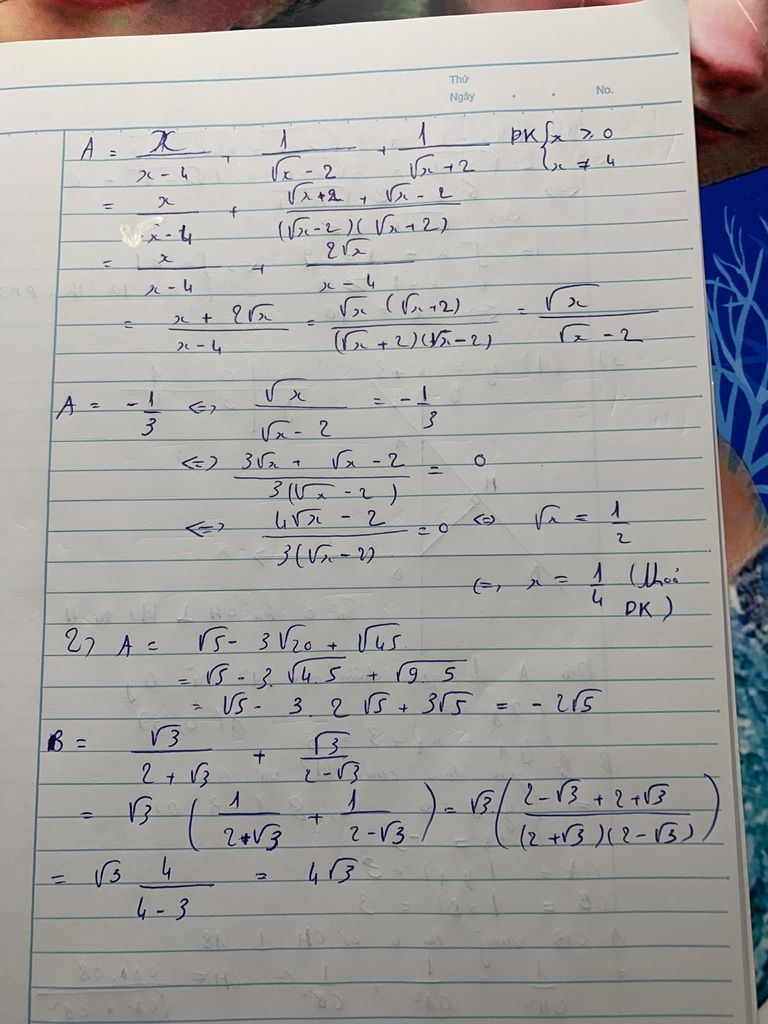 Thứ
Ngày . . No.
A = x/(x - 4) + 1/(√x - 2) + 1/(√x + 2) ĐK { x ≥ 0
x ≠ 4
= x/(x - 4) + (√x + 2 + √x - 2)/((√x - 2)(√x + 2))
= x/(x - 4) + 2√x/(x - 4)
= (x + 2√x)/(x - 4) = √x (√x + 2)/((√x + 2)(√x - 2)) = √x/(√x - 2)
A = -1/3 <=> √x/(√x - 2) = -1/3
<=> (3√x + √x - 2)/(3(√x - 2)) = 0
<=> (4√x - 2)/(3(√x - 2)) = 0 <=> √x = 1/2
<=> x = 1/4 (thoả
ĐK)
2) A = √5 - 3√20 + √45
= √5 - 3.√4.5 + √9.5
= √5 - 3.2√5 + 3√5 = -2√5
B = √3/(2 + √3) + √3/(2 - √3)
= √3 (1/(2+√3) + 1/(2 - √3)) = √3 ((2 - √3 + 2 + √3)/((2 + √3)(2 - √3)))
= √3 4/(4 - 3) = 4√3